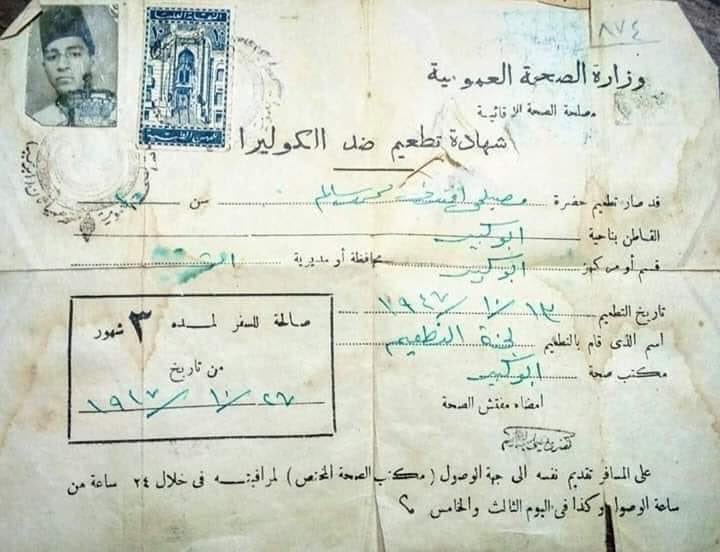 ٨٧٤
وزارة الصحة العمومية
مصلحة الصحة الوقائية
شهادة تطعيم ضد الكوليرا
قد صار تطعيم حضرة مصيلحى افندى محمد سالم سن
القاطن بناحية ابو كبير
قسم أو مركز ابو كبير محافظة أو مديرية
تاريخ التطعيم ١٣/ ١٠/ ١٩٤٧
اسم الذى قام بالتطعيم لجنة التطعيم
مكتب صحة ابو كبير
امضاء مفتش الصحة
صالحة للسفر لمدة ٣ شهور
من تاريخ
٢٦/ ١٠/ ١٩٤٧
على المسافر تقديم نفسه الى جهة الوصول ( مكتب الصحة المختص ) لمراقبته فى خلال ٢٤ ساعة من
ساعة الوصول وكذا فى اليوم الثالث والخامس